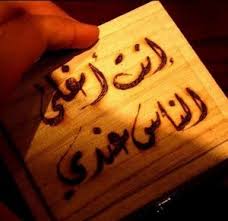 إنت أغلى
الناس عندي